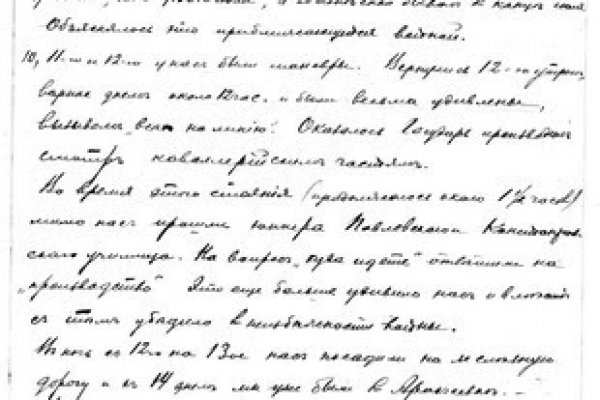 Объяснялось это приближающейся войной.
10, 11-го и 12-го у нас были маневры. Вернулись 12-го утром,
вернее днем около 12 час. и были весьма удивлены,
вызовом „всех на линию". Оказалось Государь производит
смотр кавалерийским частям.
Во время этого стояния (продолжалось около 1½ часов)
мимо нас прошли юнкера Павловского
училища. На вопрос „куда идете" ответили на
„производство" Это еще больше удивило нас и
с тем убедило в неизбежности войны.
В ночь с 12го на 13ое нас посадили на железную
дорогу и с 14 днем мы уже были в